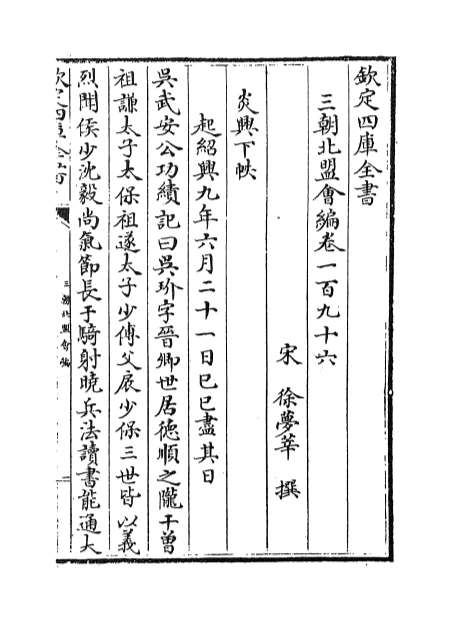 欽定四庫全書
三朝北盟會編卷一百九十六
宋 徐夢莘 撰
炎興下帙
起紹興九年六月二十一日巳巳盡其日
吳武安公功績記曰吳玠字晉卿世居德順之隴干曾
祖謙太子太保祖遂太子少傅父扆少保三世皆以義
烈聞侯少沈毅尚氣節長于騎射曉兵法讀書能通大
欽定四庫全書
三朝北盟會編